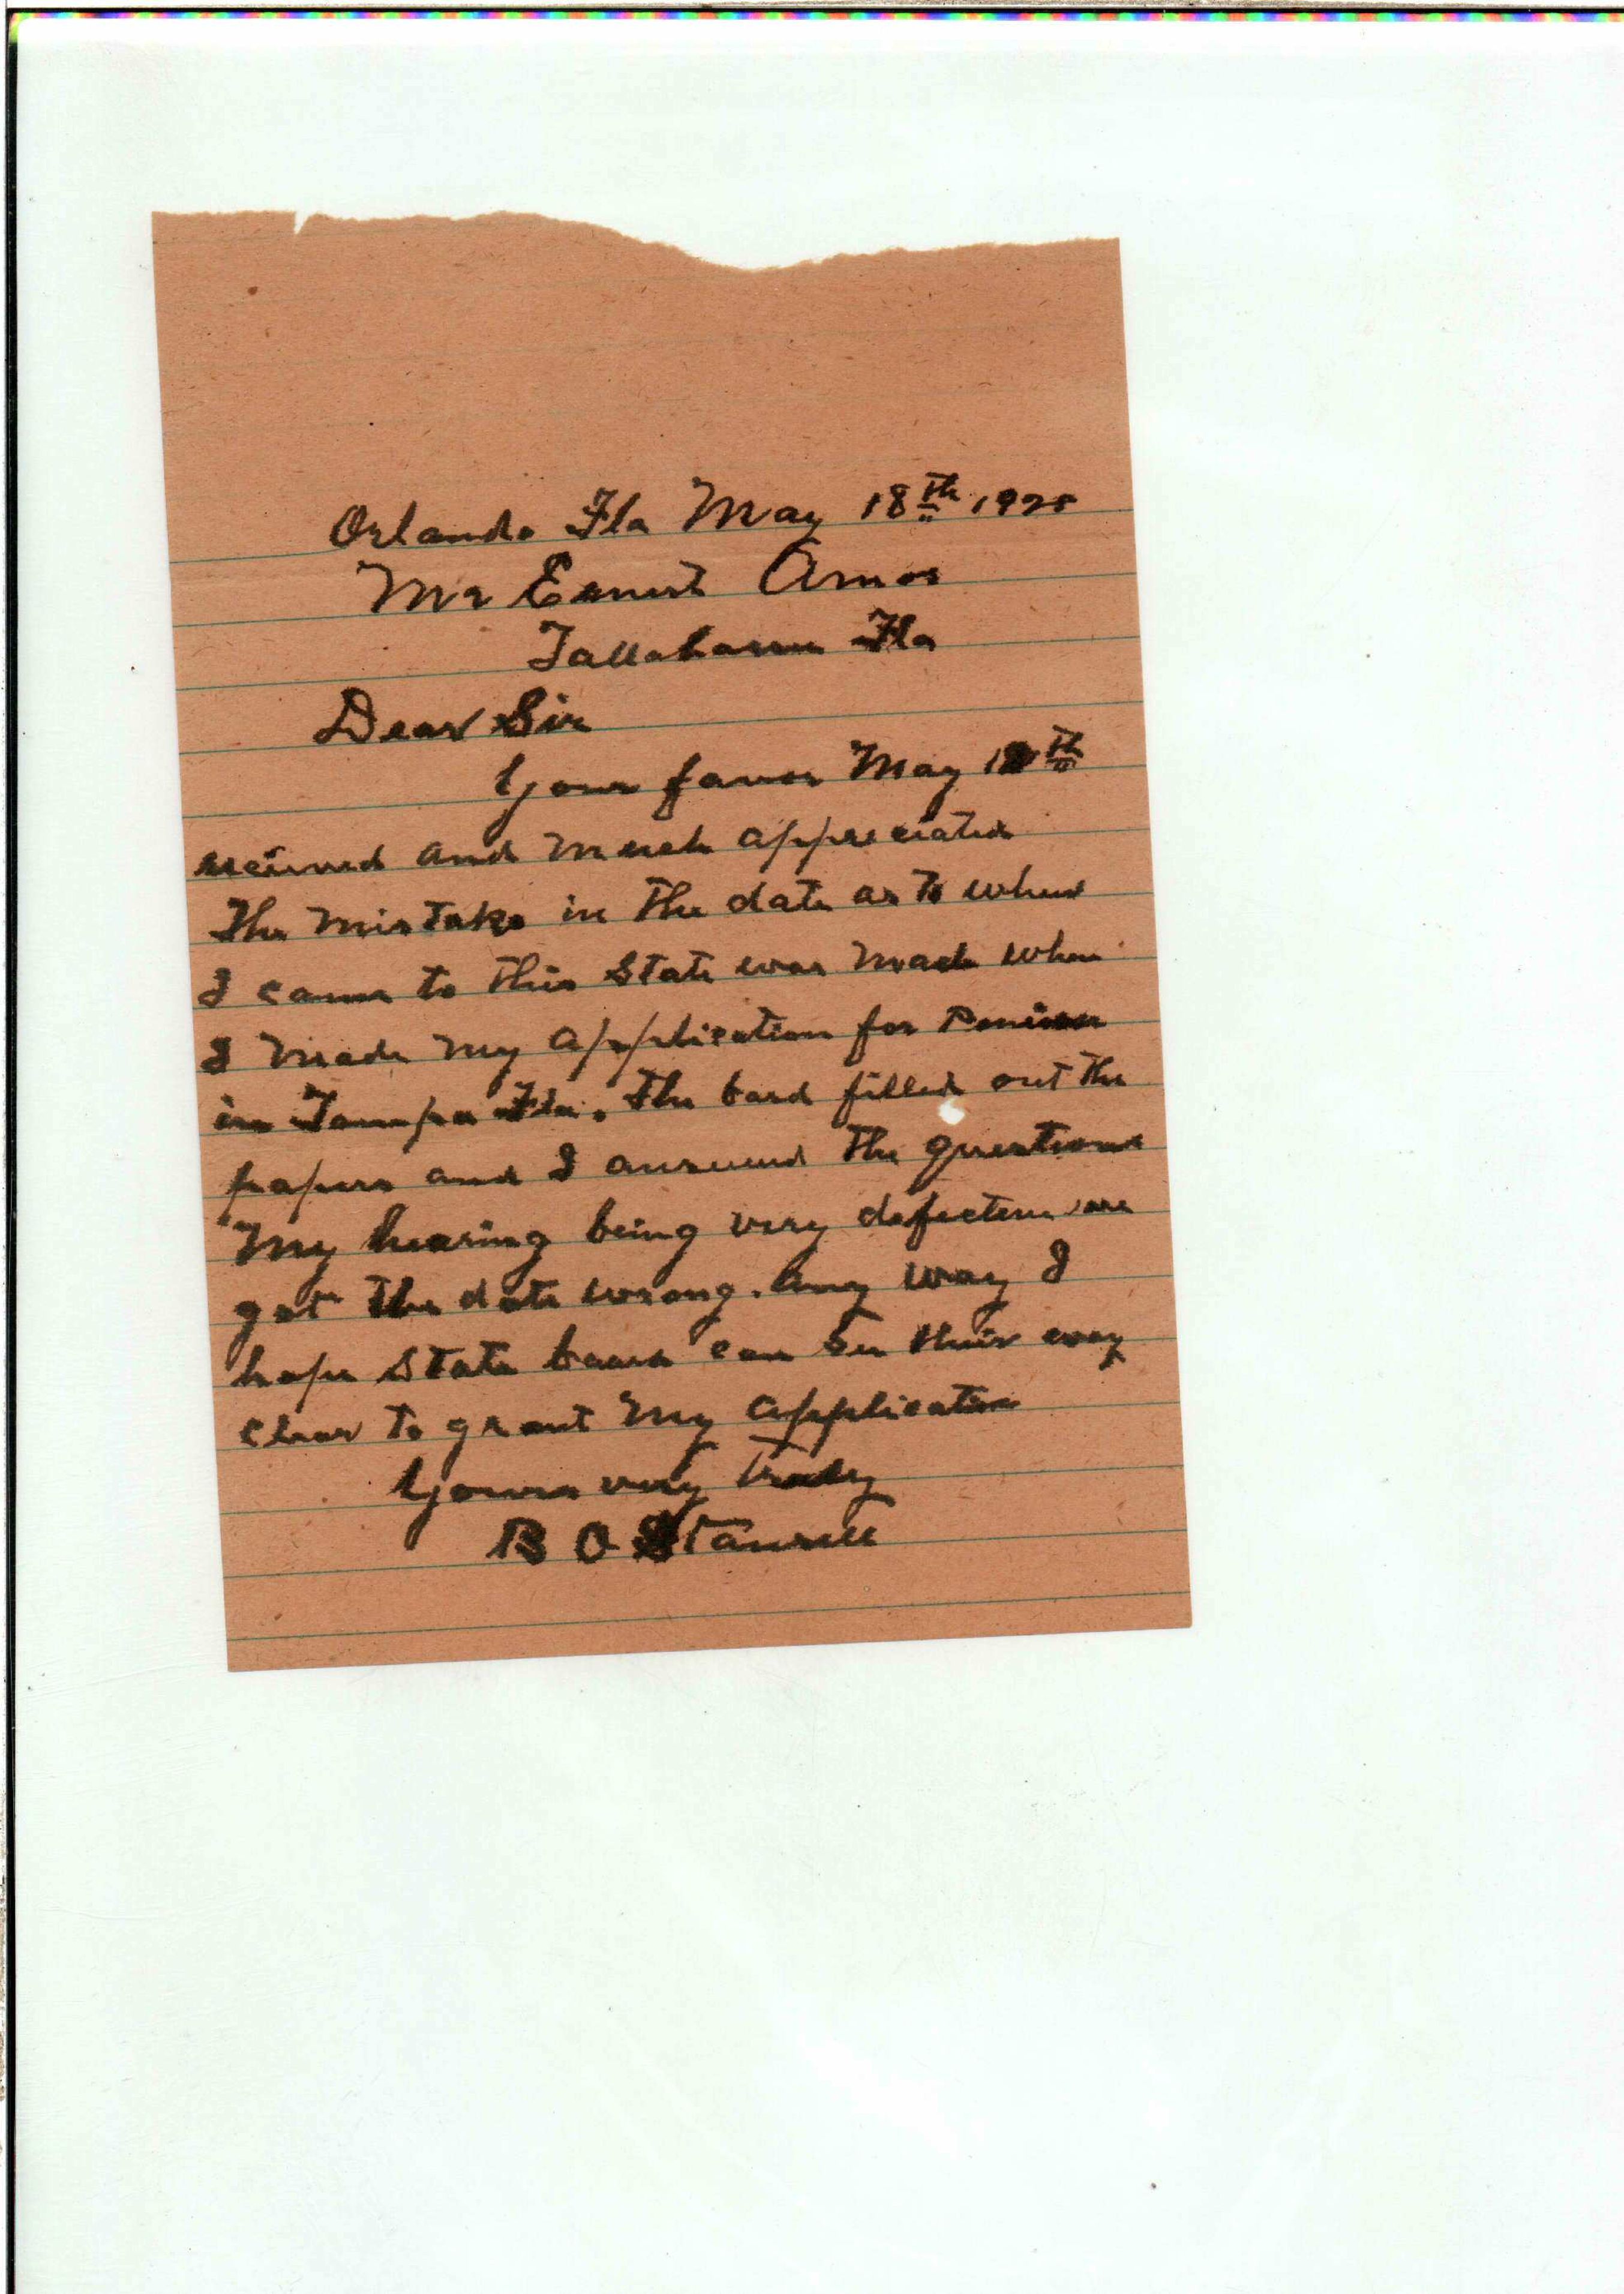 Orlando Fla May 18th 1925
Mr Ernest Amos
Tallahassee Fla
Dear Sir
Your favor May th
received and much appreciated
The mistake in the date as to when
I came to this State was made when
I made my application for Pension
in Tampa Fla. The bord filled out the
papers and I answered the questions
My hearing being very defective we
got the date wrong. Any way I
hope State board can see their way
clear to grant my application
Yours very truly
B O Stansell